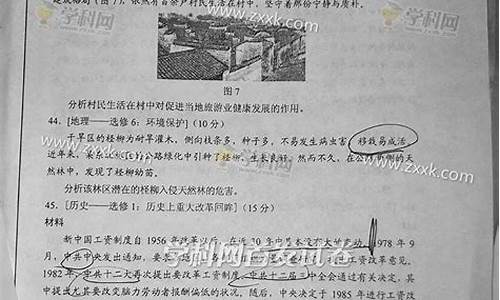 建成格局(图7)，依然有百余户村民生活在村中，坚守着那份宁静与质朴。
学科网
www.zxxk.com
图7
分析村民生活在村中对促进当地旅游业健康发展的作用。
44. [地理——选修6：环境保护] (10分)
干旱区的柽柳为耐旱灌木，侧向枝条多，种子多，不易发生病虫害，移栽易成活。
近年来，某林区在公路绿化中引种了柽柳，生长良好。然而不久，在公路所侧的天
然林中，发现了柽柳幼苗。
分析该林区潜在的柽柳入侵天然林的危害。
45. [历史——选修1：历史上重大改革回眸] (15分)
材料
新中国工资制度自1956年改革以后，在近30年中基本没有大的变动。1978年9
月，中共中央发出通知，要求
工资改革意见。
1982年，中共十二大再次提出要改革工资制度。中共十二届三中全会通过有关决定，其
中提出尤其要改变脑力劳动者报酬偏低的状况。随后，中央决定于1985年进行工资改
学科网首发试卷
www.zxxk.com